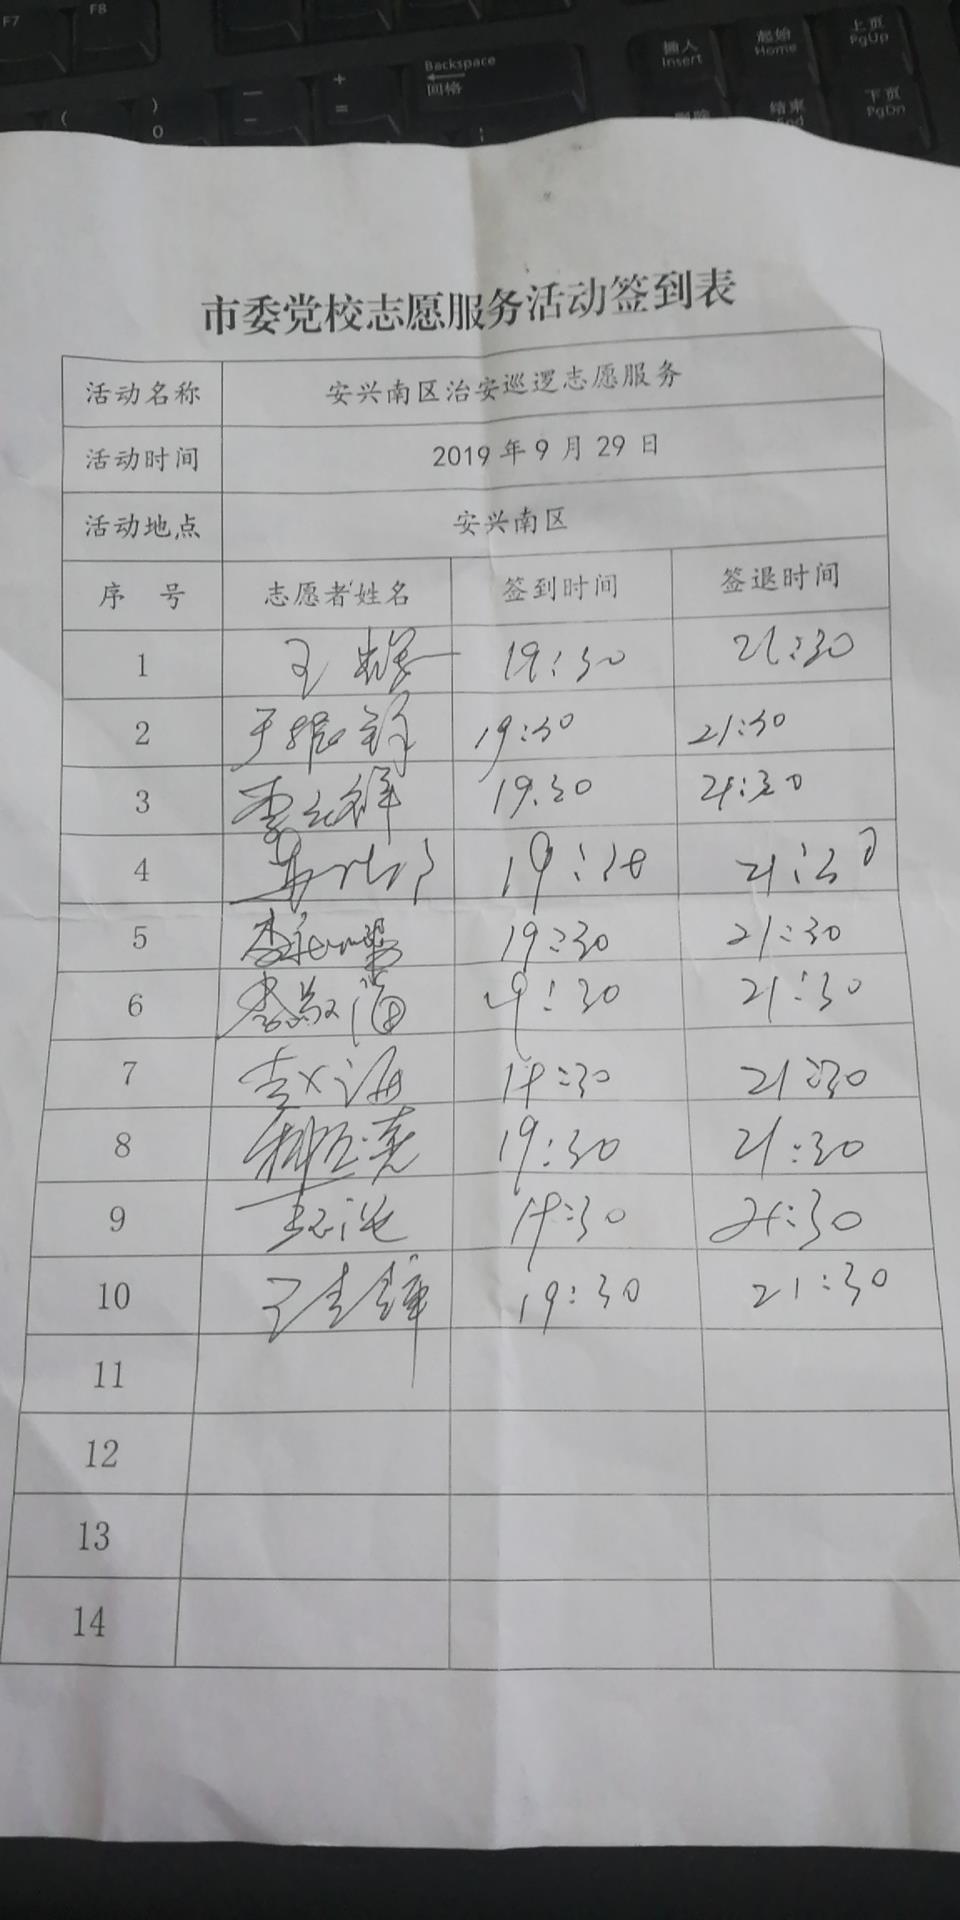 F7
F8
Backspace
回格
插入
Insert
起始
Home
上页
PgUp
下页
PgDn
结束
市委党校志愿服务活动签到表
活动名称 安兴南区治安巡逻志愿服务
活动时间 2019年9月29日
活动地点 安兴南区
序 号 志愿者姓名 签到时间 签退时间
1 王 19:30 21:30
2 于振 19:30 21:30
3 李元祥 19:30 21:30
4 19:30 21:30
5 李 19:30 21:30
6 李 19:30 21:30
7 海 19:30 21:30
8 19:30 21:30
9 19:30 21:30
10 19:30 21:30
11
12
13
14